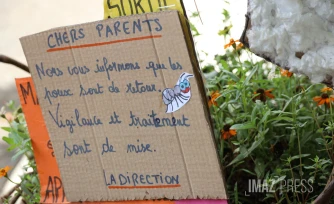 SORTIE
CHERS PARENTS
Nous vous informons que les
poux sont de retour.
Vigilance et traitement
sont de mise.
LA DIRECTION
AP
IMAZ PRESS